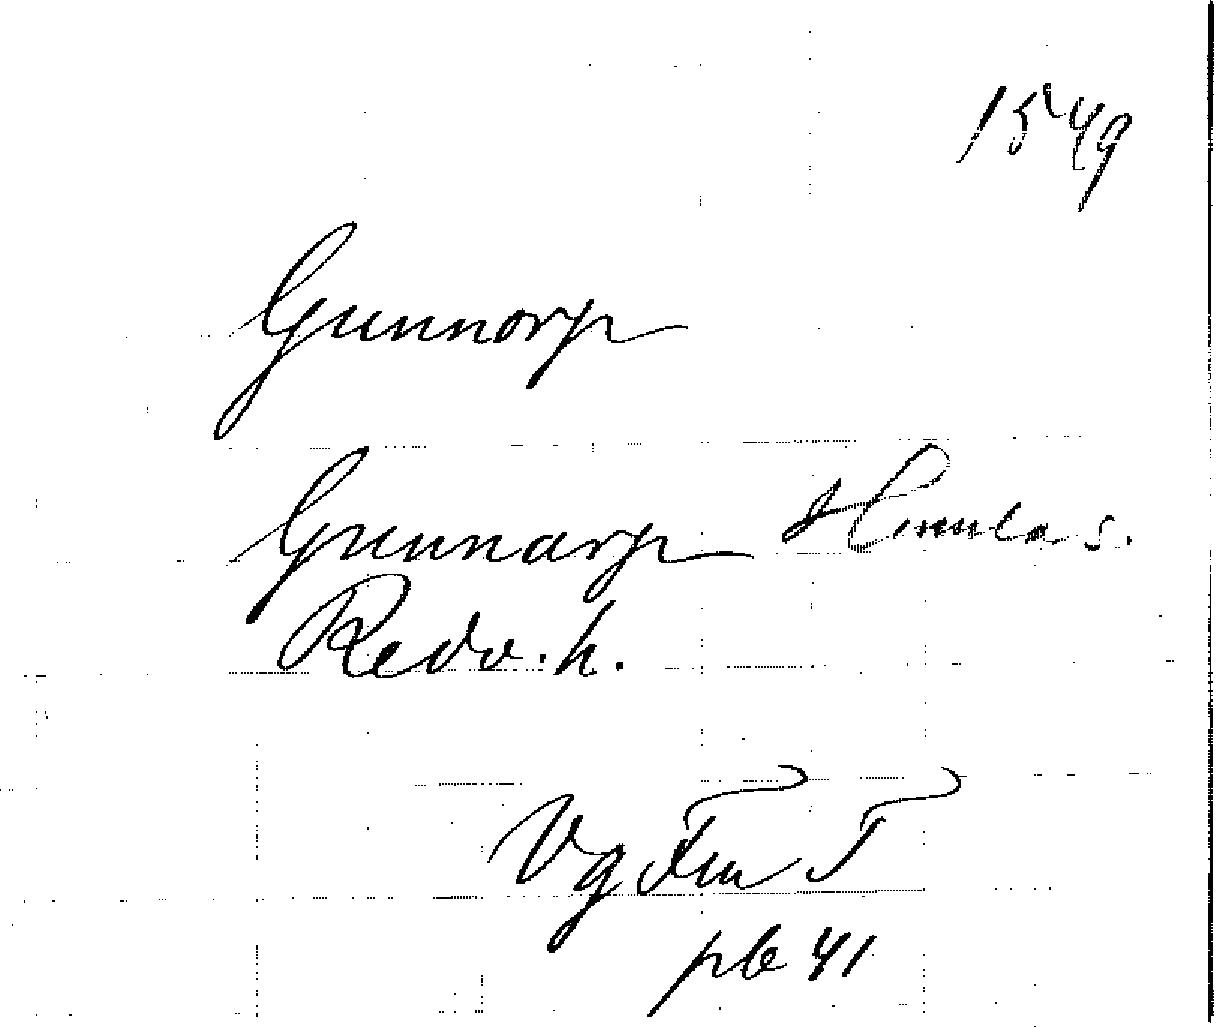 1549
Gunnorp
Gunnarp Himla s.
Redv. h.
Vg Fru T
pb 41